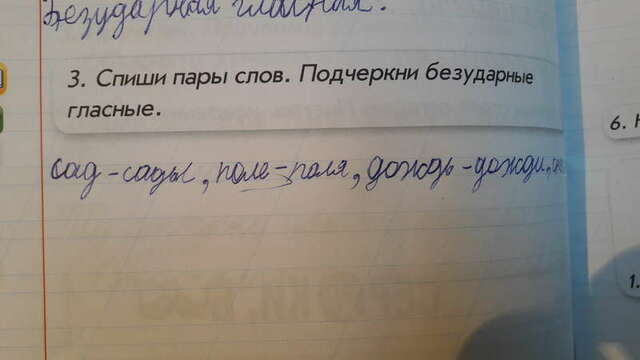 Безударная гласная.
3. Спиши пары слов. Подчеркни безударные
гласные.
сад - сады, поле - поля, дождь - дожди,
6.
1.